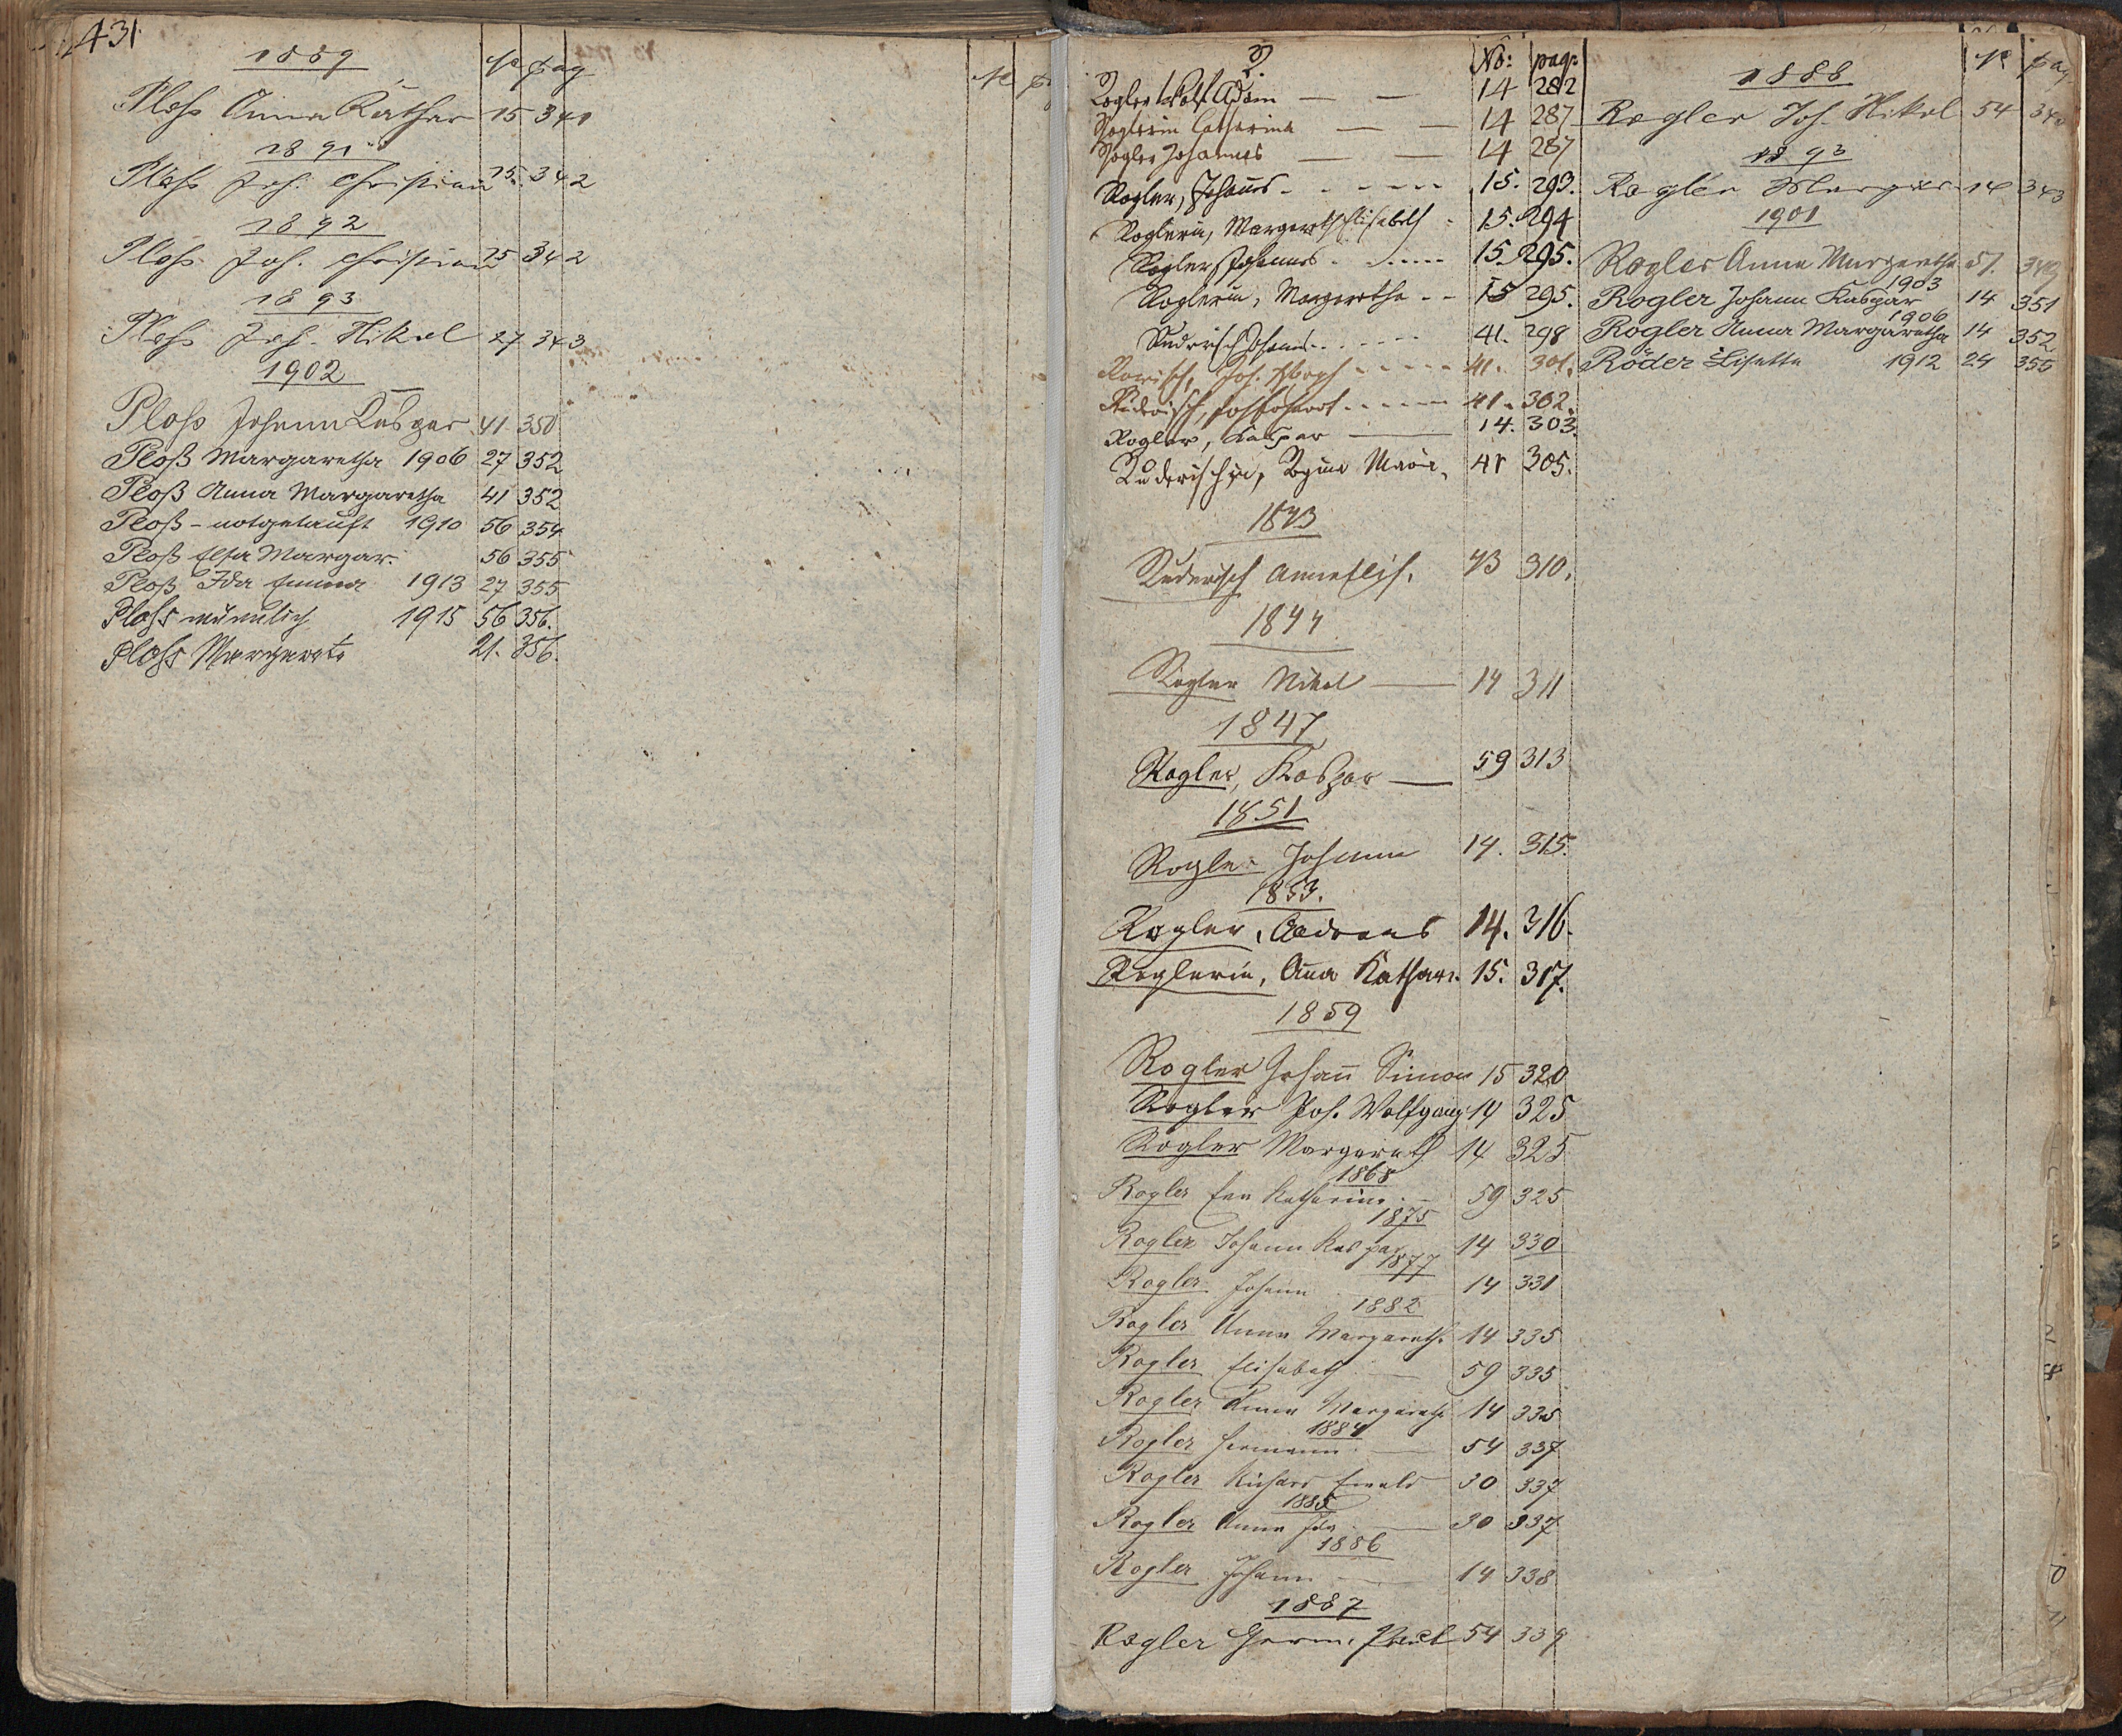 431
1889
No pag
Ploß Anna Kathar 15 341
1891
Ploß Joh. Christian 15. 342
1892
Ploß Joh. Christian 15 342
1893
Ploß Joh. Nikol 27 343
1902
Ploß Johann Kaspar 41 350
Ploß Margaretha 1906 27 352
Ploß Anna Margaretha 41 352
Ploß - notgetauft 1910 56 354
Ploß Elsa Margar. 56 355
Ploß Ida Emma 1913 27 355
Ploß männlich 1915 56 356.
Ploß Margareta 21. 356.
R.
No: pag:
Rogler Wolf Adam — — 14 282
Roglerin Catharina — — 14 287
Rogler Johannes — — 14 287
Rogler, Johannes 15. 293.
Roglerin, Margareth Elisabeth 15. 294
Rogler, Johannes 15. 295.
Roglerin, Margaretha 15 295.
Ruderisch Johannes 41. 298
Joh. 41. 301.
Ruderisch, 41. 302.
Rogler, Kaspar — 14. 303.
Ruderischin, Regina Maria 41 305.
1843
Ruderisch Anna Elis. 43 310.
1844
Rogler Nikol — 14 311
1847
Rogler, Kaspar — 59 313
1851
Rogler Johann 14. 315.
1853.
Rogler, Andreas 14. 316.
Roglerin, Anna Kathar. 15. 317.
1859
Rogler Johann Simon 15 320
Rogler Joh. Wolfgang 14 325
Rogler Margareth 14 325
1868
Rogler Eva Katharina — 59 325
1875
Rogler Johann Kaspar 14 330
1877
Rogler Johann 14 331
1882
Rogler Anna Margareth. 14 335
Rogler Elisabeth — 59 335
Rogler Anna Margareth 14 335
1884
Rogler Hermann — 54 337
Rogler Richard Ewald 30 337
1885
Rogler Anna Ida — 30 337
1886
Rogler Johann — 14 338
1887
Rogler Herm. Paul 54 339
No pag
1888
Rogler Joh. Nikol 54 340
1893
Rogler Margar. 14 343
1901
Rogler Anna Margaretha 57. 349
1903
Rogler Johann Kaspar 14 351
1906
Rogler Anna Margaretha 14 352
Röder Lisette 1912 24 355